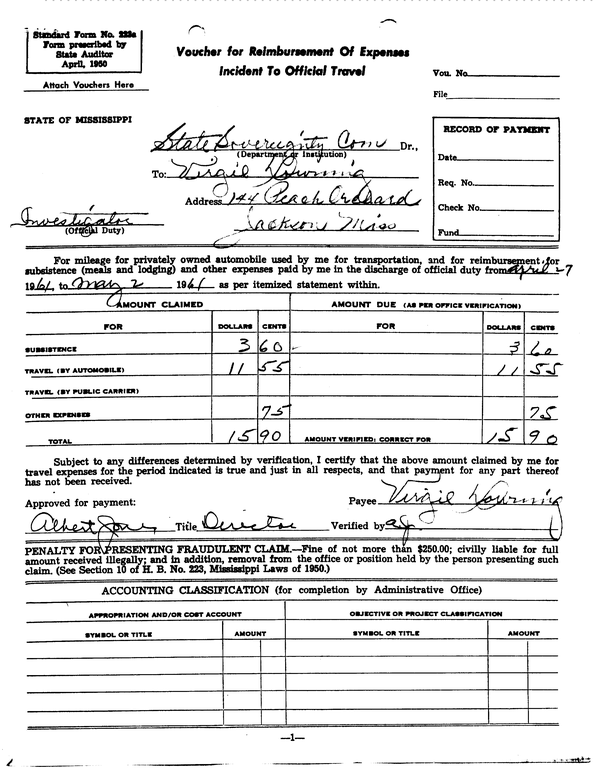 Standard Form No. 223a
Form prescribed by
State Auditor
April, 1950
Attach Vouchers Here
Voucher for Reimbursement Of Expenses
Incident To Official Travel
Vou. No.
File
STATE OF MISSISSIPPI
State Sovereignty Com Dr.,
(Department or Institution)
To: Virgil Downing
Address 144 Peach Orchard
Jackson Miss
Investigator
(Official Duty)
RECORD OF PAYMENT
Date
Req. No.
Check No.
Fund
For mileage for privately owned automobile used by me for transportation, and for reimbursement for
subsistence (meals and lodging) and other expenses paid by me in the discharge of official duty from April 27
1961, to May 2 1961 as per itemized statement within.
AMOUNT CLAIMED AMOUNT DUE (AS PER OFFICE VERIFICATION)
FOR DOLLARS CENTS FOR DOLLARS CENTS
SUBSISTENCE 3 60 3 60
TRAVEL (BY AUTOMOBILE) 11 55 11 55
TRAVEL (BY PUBLIC CARRIER)
OTHER EXPENSES 75 75
TOTAL 15 90 AMOUNT VERIFIED: CORRECT FOR 15 90
Subject to any differences determined by verification, I certify that the above amount claimed by me for
travel expenses for the period indicated is true and just in all respects, and that payment for any part thereof
has not been received.
Payee Virgil Downing
Approved for payment:
Albert Jones Title Director Verified by aj
PENALTY FOR PRESENTING FRAUDULENT CLAIM.—Fine of not more than $250.00; civilly liable for full
amount received illegally; and in addition, removal from the office or position held by the person presenting such
claim. (See Section 10 of H. B. No. 223, Mississippi Laws of 1950.)
ACCOUNTING CLASSIFICATION (for completion by Administrative Office)
APPROPRIATION AND/OR COST ACCOUNT OBJECTIVE OR PROJECT CLASSIFICATION
SYMBOL OR TITLE AMOUNT SYMBOL OR TITLE AMOUNT
—1—